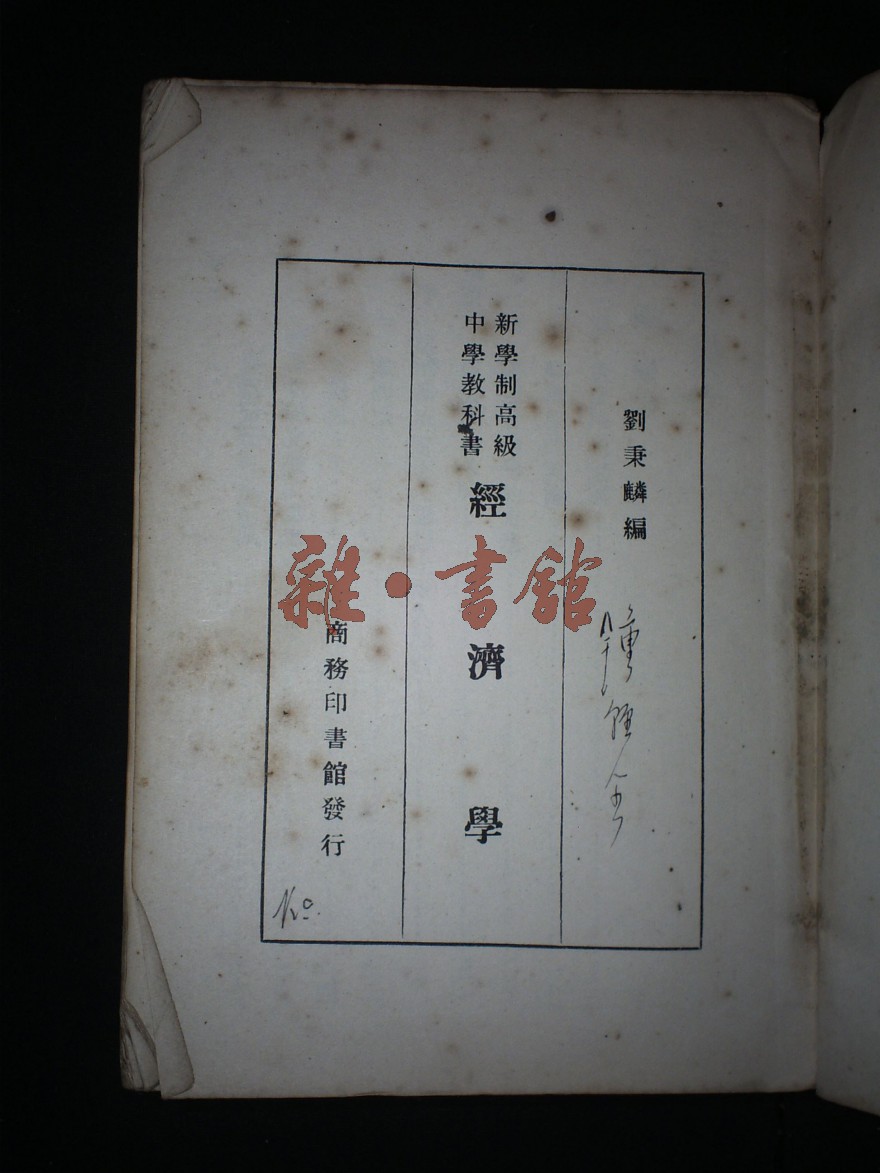 劉秉麟編
新學制高級
中學教科書
經濟學
商務印書館發行
雜·書館
No.